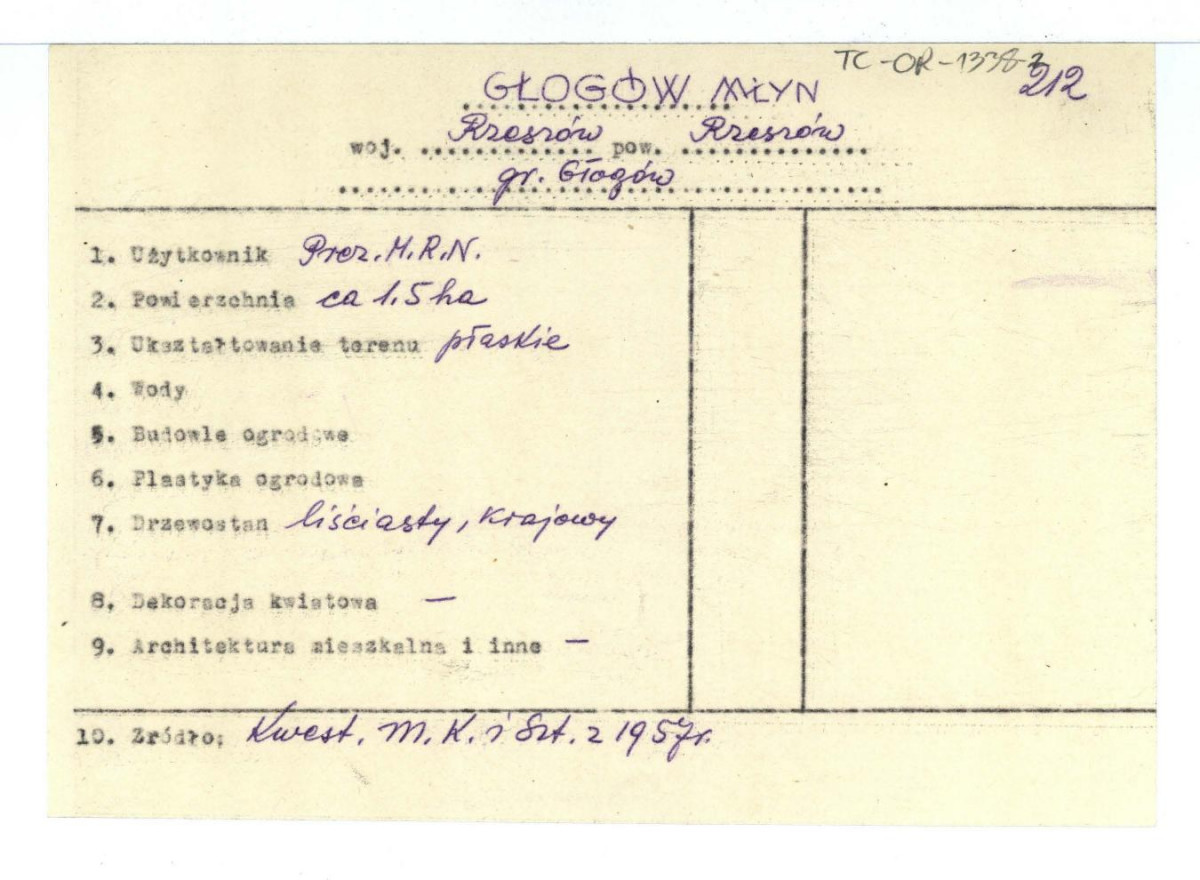 TC-OR-1338-2
212
GŁOGÓW MŁYN
woj. Rzeszów pow. Rzeszów
gr. Głogów
1. Użytkownik Prez. M.R.N.
2. Powierzchnia ca 1.5 ha
3. Ukształtowanie terenu płaskie
4. Wody
5. Budowle ogrodowe
6. Plastyka ogrodowa
7. Drzewostan liściasty, krajowy
8. Dekoracja kwiatowa —
9. Architektura mieszkalna i inne —
10. Zródło: Kwest. M. K. i Szt. z 1957r.